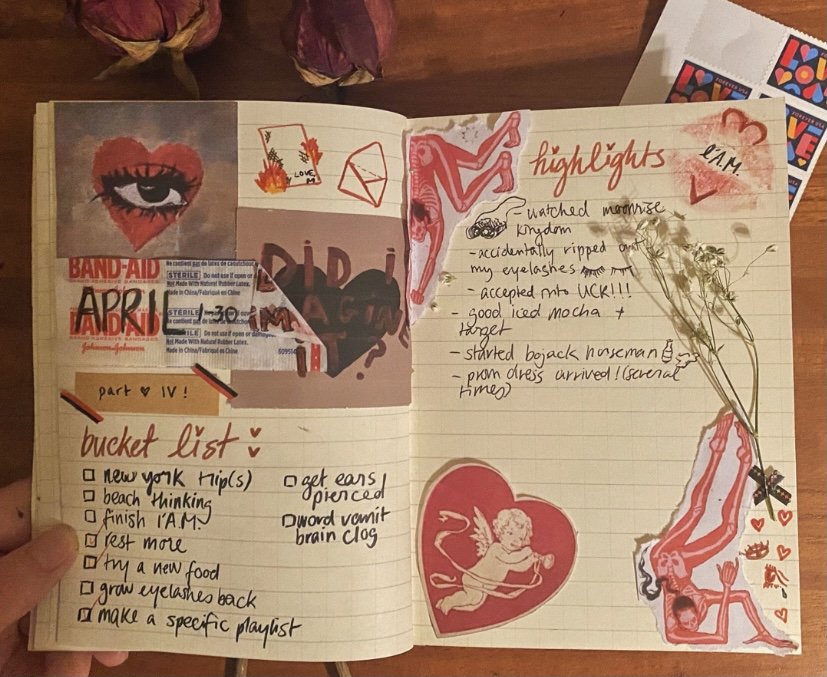 LOVE,
M
DID I
IMAGINE
IT?
BAND-AID
STERILE
Made in China/Fabriqué en Chine
APRIL 1-30
BAND-AID
STERILE
Not Made With Natural Rubber Latex.
Made in China/Fabriqué en Chine
Johnson+Johnson
part ♥ IV!
bucket list
new york trip(s)
beach thinking
finish I'A.M.
rest more
try a new food
grow eyelashes back
make a specific playlist
get ears
pierced
word vomit
brain clog
highlights
I'A.M.
- watched moonrise
kingdom
- accidentally ripped out
my eyelashes
- accepted into UCR!!!
- good iced mocha +
target
- started bojack horseman
- prom dress arrived! (several
times)
LOVE
LOVE
LOVE
FOREVER USA